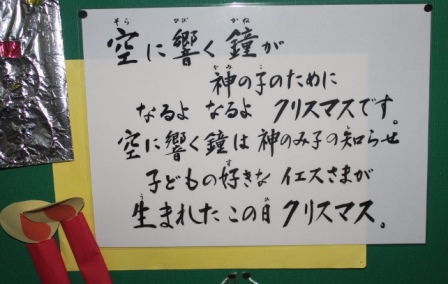 空に響く鐘が
神の子のために
なるよ なるよ クリスマスです。
空に響く鐘は 神のみ子の知らせ
子どもの好きな イエスさまが
生まれた この日 クリスマス。